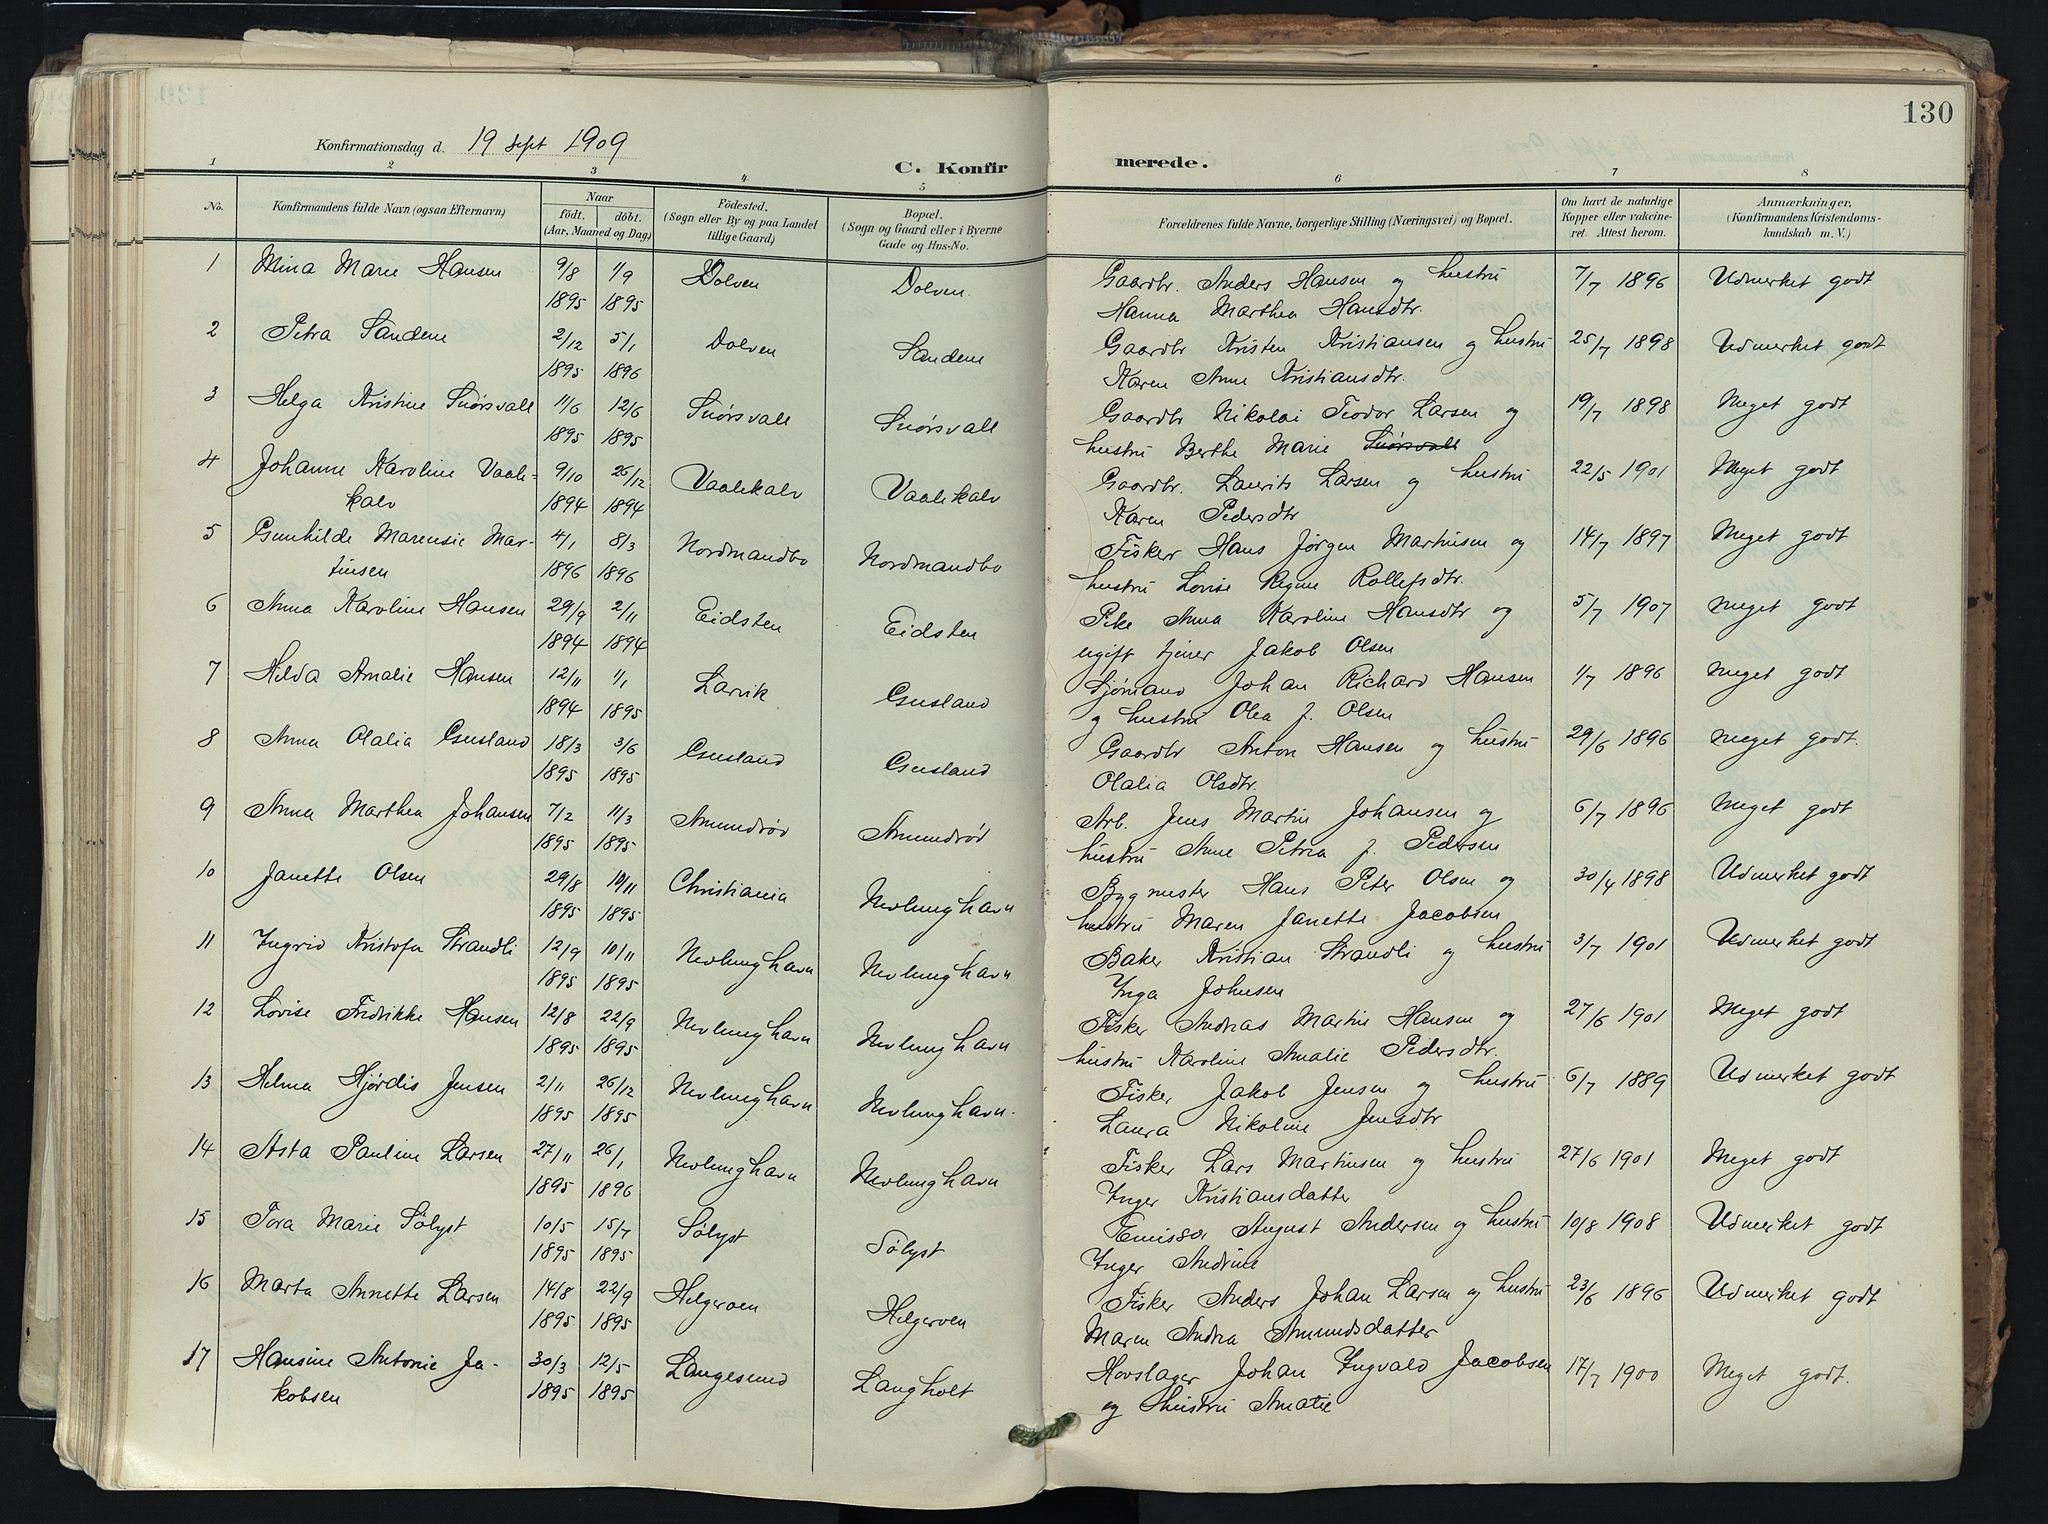 130
Konfirmationsdag d. 19 Sept 1909
C. Konfirmerede.
1 2 3 4 5 6 7 8
No.
Konfirmandens fulde Navn (ogsaa Efternavn)
Naar
födt. döbt.
(Aar, Maaned og Dag)
Födested.
(Sogn eller By og paa Landet
tillige Gaard)
Bopæl.
(Sogn og Gaard eller i Byerne
Gade og Hus-No.
Forældrenes fulde Navne, borgerlige Stilling (Næringsvei) og Bopæl.
Om havt de naturlige
Kopper eller vakcine-
ret. Attest herom.
Anmærkninger.
(Konfirmandens Kristendoms-
kundskab m. V.)
1 Mina Marie Hansen 9/8 1/9 Dolven Dolven Gaardbr. Anders Hansen og hustru 7/7 1896 Udmerket godt
1895 1895 Hanna Marthea Hansdtr.
2 Petra Sandene 2/12 5/1 Dolven Sandene Gaardbr Kristen Kristiansen og hustru 25/7 1898 Udmerket godt
1895 1896 Karen Anne Kristiansdtr.
3 Helga Kristine Snørsvall 11/6 12/6 Snørsvall Snørsvall Gaardbr Nikolai Teodor Larsen og 19/7 1898 Meget godt
1895 1895 hustru Berthe Marie Snørsvall
4 Johanne Karoline Vaale- 9/10 26/12 Vaalekalv Vaalekalv Gaardbr. Laurits Larsen og hustru 22/5 1901 Meget godt
kalv 1894 1894 Karen Pedersdtr
5 Gunhilde Marensie Mar- 4/1 8/3 Nordmandbo Nordmandbo Fisker Hans Jørgen Martinsen og 14/7 1897 Meget godt
tinsen 1896 1896 hustru Lovise Regine Rollefsdtr.
6 Anna Karoline Hansen 29/9 2/11 Eidsten Eidsten Pike Anna Karoline Hansdtr og 5/7 1907 Meget godt
1894 1894 ugift tjener Jakob Olsen
7 Hilda Amalie Hansen 12/11 1/1 Larvik Gusland Sjømand Johan Richard Hansen 1/7 1896 Meget godt
1894 1895 og hustru Olea J. Olsen
8 Anna Olalia Gusland 18/3 3/6 Gusland Gusland Gaardbr Anton Hansen og hustru 29/6 1896 Meget godt.
1895 1895 Olalia Olsdtr.
9 Anna Marthea Johansen 7/2 11/3 Amundrød Amundrød Arb. Jens Martin Johansen og 6/7 1896 Meget godt
1895 1895 hustru Anne Petria J. Pedersen
10 Janette Olsen 29/8 10/11 Christiania Nevlunghavn Bygmester Hans Peter Olsen og 30/4 1898 Udmerket godt
1895 1895 hustru Maren Janette Jacobsen
11 Ingrid Kristofa Strandli 12/9 10/11 Nevlunghavn Nevlunghavn Baker Kristian Strandli og hustru 3/7 1901 Udmerket godt
1895 1895 Inga Johnsen
12 Lovise Fredrikke Hansen 12/8 22/9 Nevlunghavn Nevlunghavn Fisker Andreas Martin Hansen og 27/6 1901 Meget godt
1895 1895 hustru Karoline Amalie Pedersdtr.
13 Helma Hjørdis Jensen 2/11 26/12 Nevlunghavn Nevlunghavn. Fisker Jakob Jensen og hustru 6/7 1889 Udmerket godt
1895 1895 Laura Nikoline Jensdtr
14 Asta Pauline Larsen 27/11 26/1 Nevlunghavn Nevlunghavn Fisker Lars Martinsen og hustru 27/6 1901 Meget godt
1895 1896 Inger Kristiansdatter
15 Tora Marie Sølyst 10/5 15/7 Sølyst Sølyst Emissær August Andersen og hustru 10/8 1908 Udmerket godt
1895 1895 Inger Andrine
16 Marta Annette Larsen 14/8 22/9 Helgeroen Helgeroen Fisker Anders Johan Larsen og hustru 23/6 1896 Udmerket godt
1895 1895 Maren Andrea Amundsdatter
17 Hansine Antonie Ja- 30/3 12/5 Langesund Langholt Hovslager Johan Ingvald Jacobsen 17/7 1900 Meget godt.
kobsen 1895 1895 og hustru Amalie